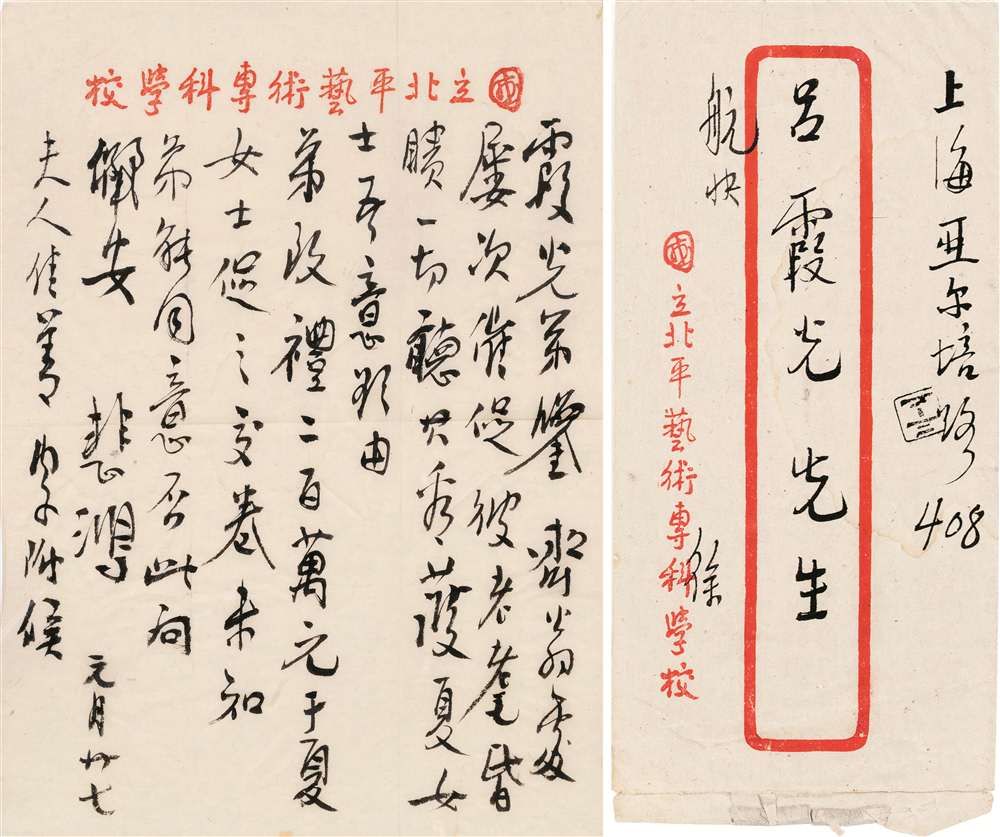 國立北平藝術專科學校
霞光弟鑒 齊翁處
屢次催促彼老耄昏
瞶一切聽其看護夏女
士吾意欲由
弟致禮二百萬元于夏
女士促之交卷未知
弟能同意否此問
儷安 悲鴻 元月廿七
夫人佳善 內子附候
上海亞尔培路408
呂霞光先生
航快
國立北平藝術專科學校
徐